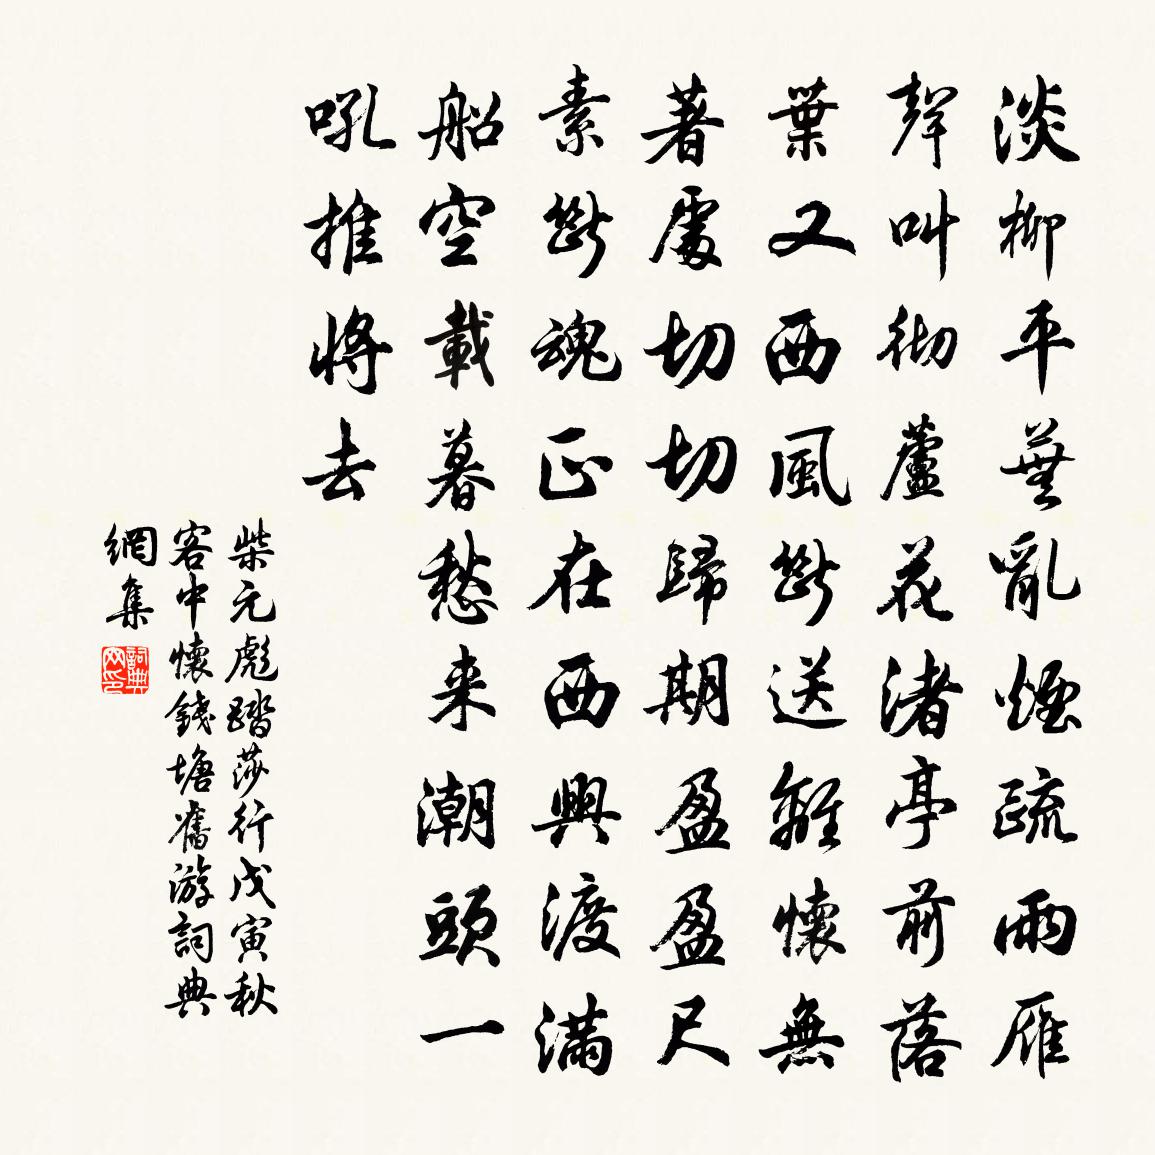 淡柳平蕪亂煙疏雨雁
聲叫彻蘆花渚亭前落
葉又西風斷送離懷無
著處切切歸期盈盈尺
素斷魂正在西興渡滿
船空載暮愁来潮頭一
吼推將去
柴元彪踏莎行戊寅秋
客中懷錢塘舊游詞典
網集
詞典网印